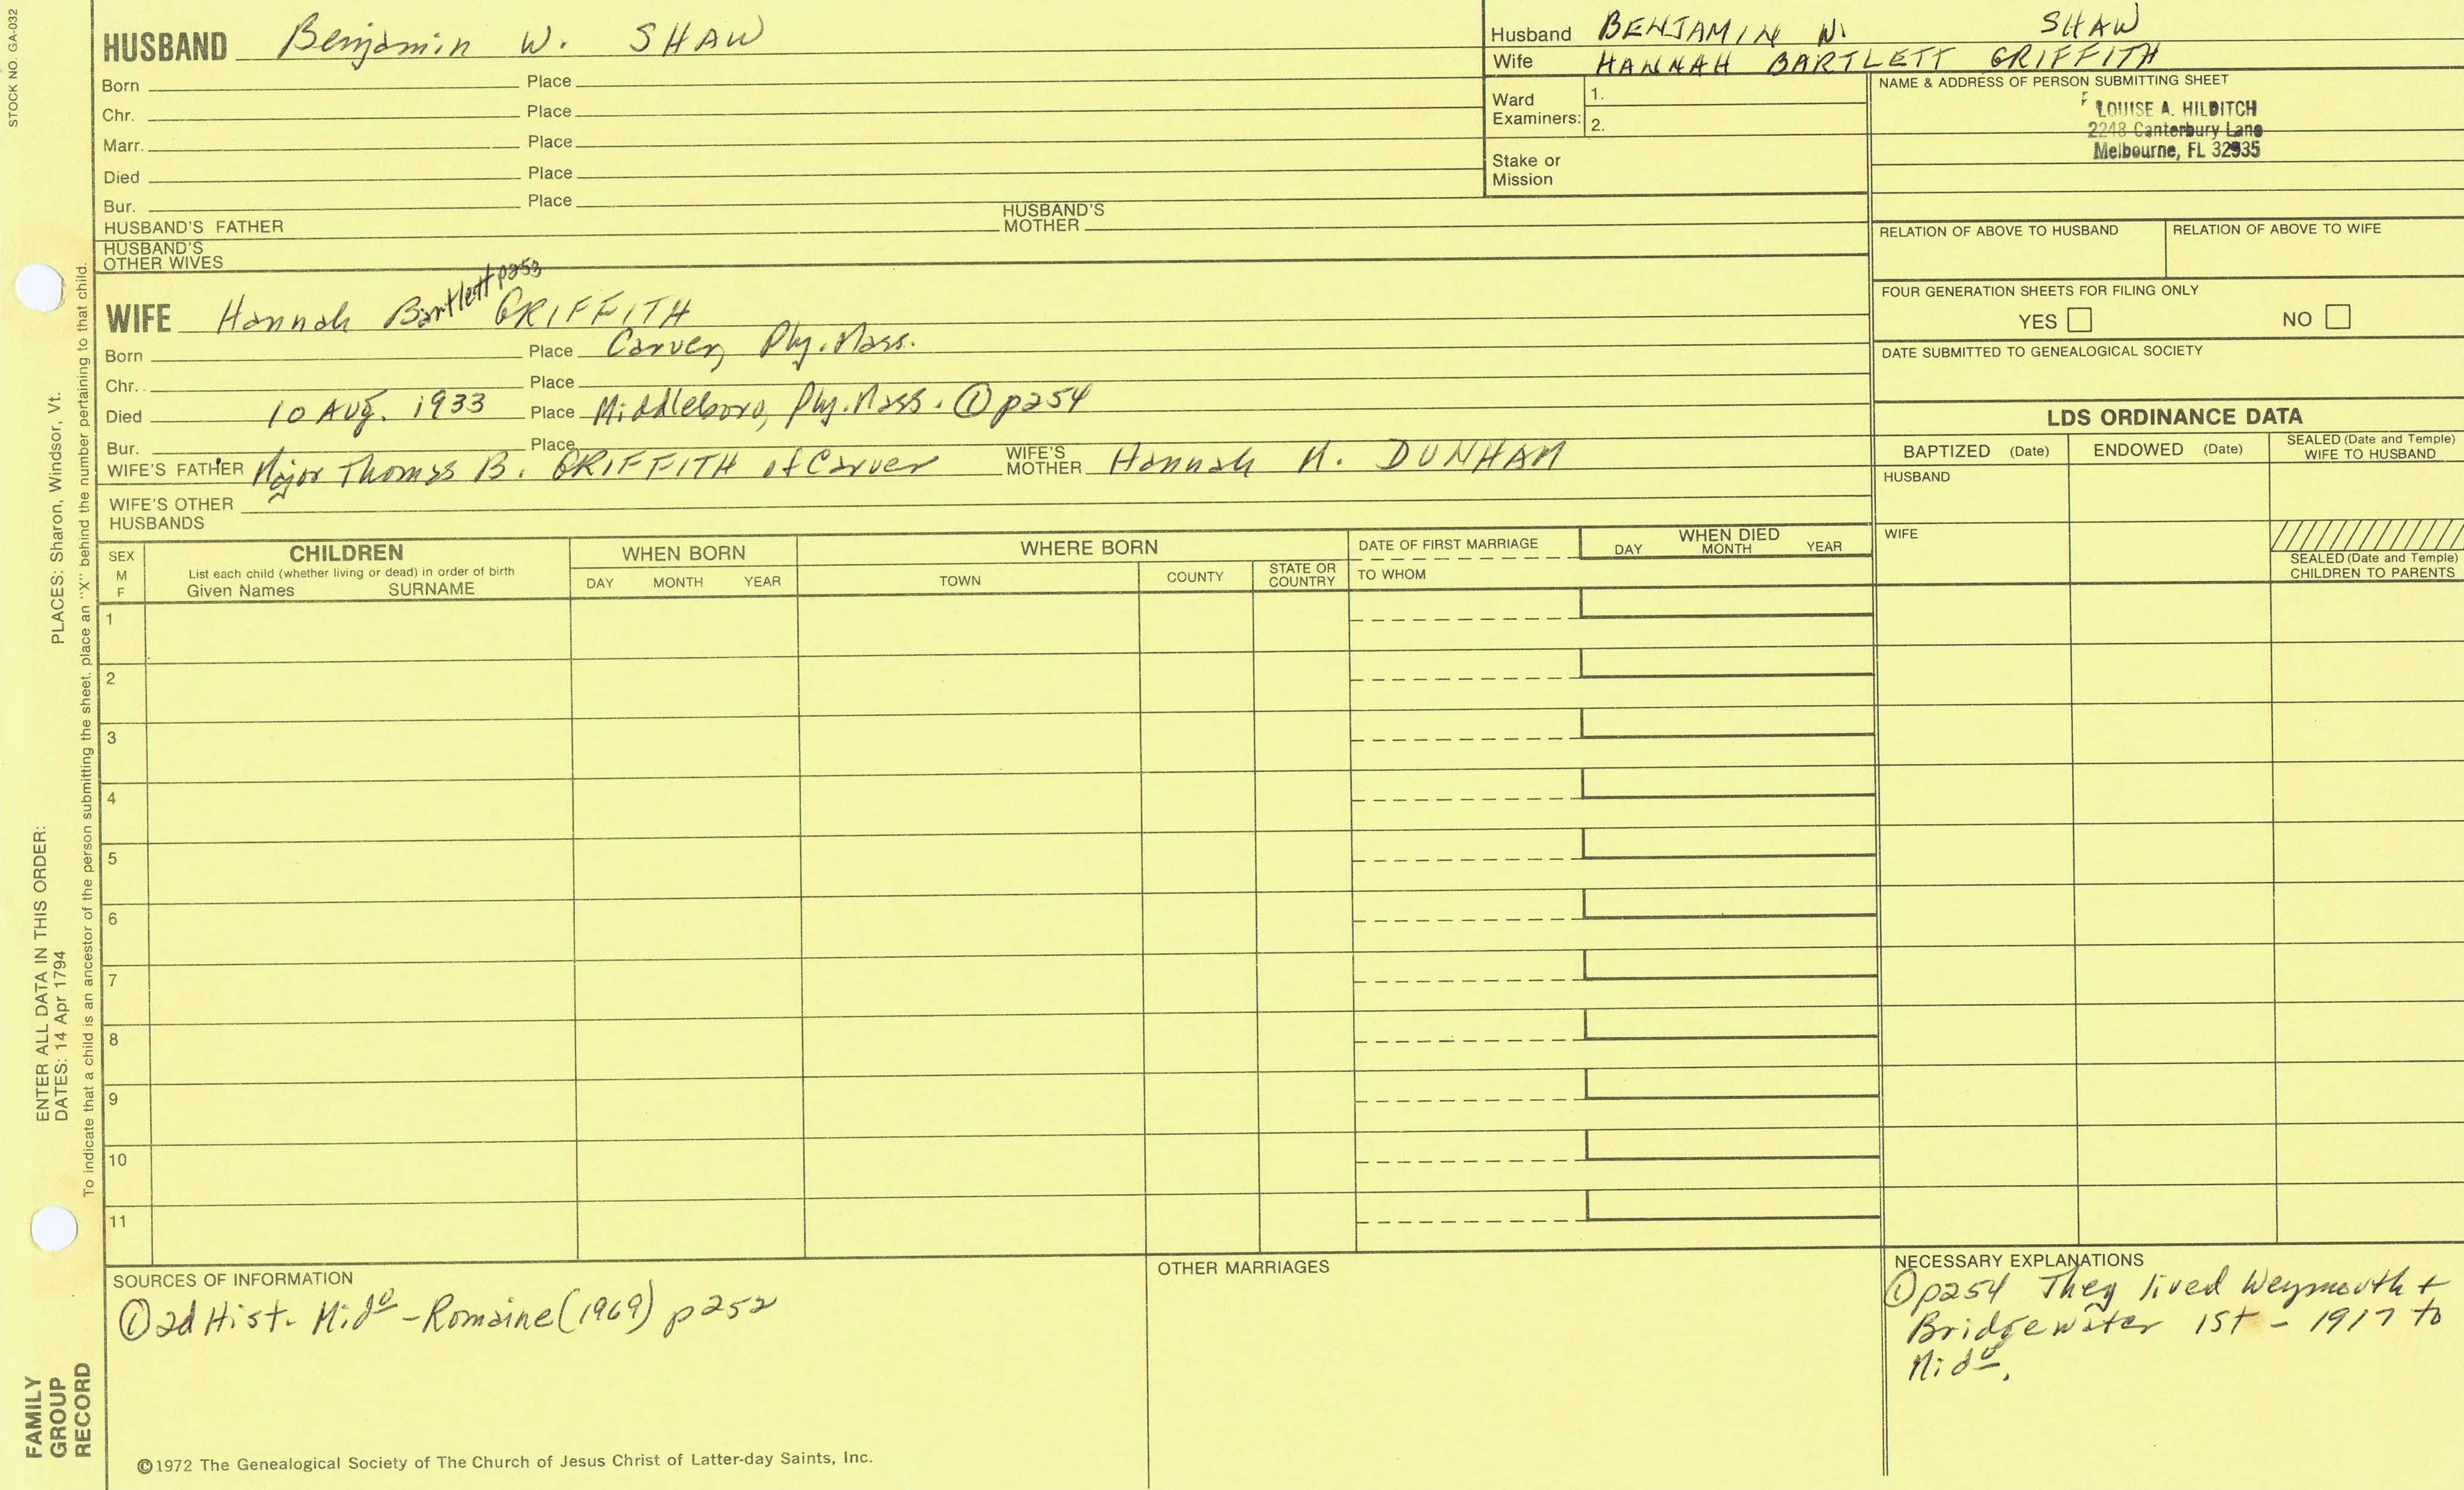 STOCK NO. GA-032
HUSBAND Benjamin W. SHAW
Born Place
Chr. Place
Marr. Place
Died Place
Bur. Place
HUSBAND'S FATHER HUSBAND'S MOTHER
HUSBAND'S OTHER WIVES
WIFE Hannah Bartlett p253 GRIFFITH
Born Place Carver, Ply. Mass.
Chr. Place
Died 10 Aug. 1933 Place Middleboro, Ply. Mass. ① p254
Bur. Place
WIFE'S FATHER Major Thomas B. GRIFFITH of Carver WIFE'S MOTHER Hannah M. DUNHAM
WIFE'S OTHER HUSBANDS
Husband BENJAMIN W. SHAW
Wife HANNAH BARTLETT GRIFFITH
Ward Examiners: 1.
2.
Stake or Mission
NAME & ADDRESS OF PERSON SUBMITTING SHEET
LOUISE A. HILDITCH
2248 Canterbury Lane
Melbourne, FL 32935
RELATION OF ABOVE TO HUSBAND RELATION OF ABOVE TO WIFE
FOUR GENERATION SHEETS FOR FILING ONLY
YES NO
DATE SUBMITTED TO GENEALOGICAL SOCIETY
LDS ORDINANCE DATA
BAPTIZED (Date) ENDOWED (Date) SEALED (Date and Temple) WIFE TO HUSBAND
HUSBAND
WIFE
SEALED (Date and Temple) CHILDREN TO PARENTS
SEX M F
CHILDREN
List each child (whether living or dead) in order of birth
Given Names SURNAME
WHEN BORN
DAY MONTH YEAR
WHERE BORN
TOWN COUNTY STATE OR COUNTRY
DATE OF FIRST MARRIAGE
TO WHOM
WHEN DIED
DAY MONTH YEAR
1
2
3
4
5
6
7
8
9
10
11
SOURCES OF INFORMATION
① 2d Hist. Mido - Romaine (1969) p252
OTHER MARRIAGES
NECESSARY EXPLANATIONS
① p254 They lived Weymouth +
Bridgewater 1st - 1917 to
Mido.
©1972 The Genealogical Society of The Church of Jesus Christ of Latter-day Saints, Inc.
FAMILY
GROUP
RECORD
ENTER ALL DATA IN THIS ORDER:
DATES: 14 Apr 1794
PLACES: Sharon, Windsor, Vt.
To indicate that a child is an ancestor of the person submitting the sheet, place an "X" behind the number pertaining to that child.